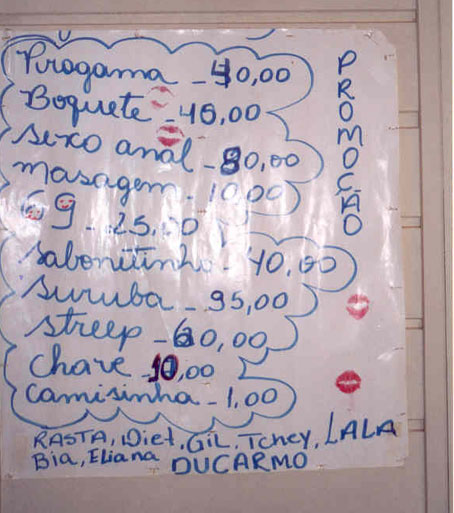 Programa - 40,00
Boquete - 45,00
sexo anal - 80,00
masagem - 10,00
69 - 25,00
sabonitinho - 40,00
suruba - 95,00
streep - 60,00
chave 10,00
camisinha - 1,00
PROMOÇÃO
RASTA, Diet, GiL, Tchey, LALA
Bia, ELiana DUCARMO